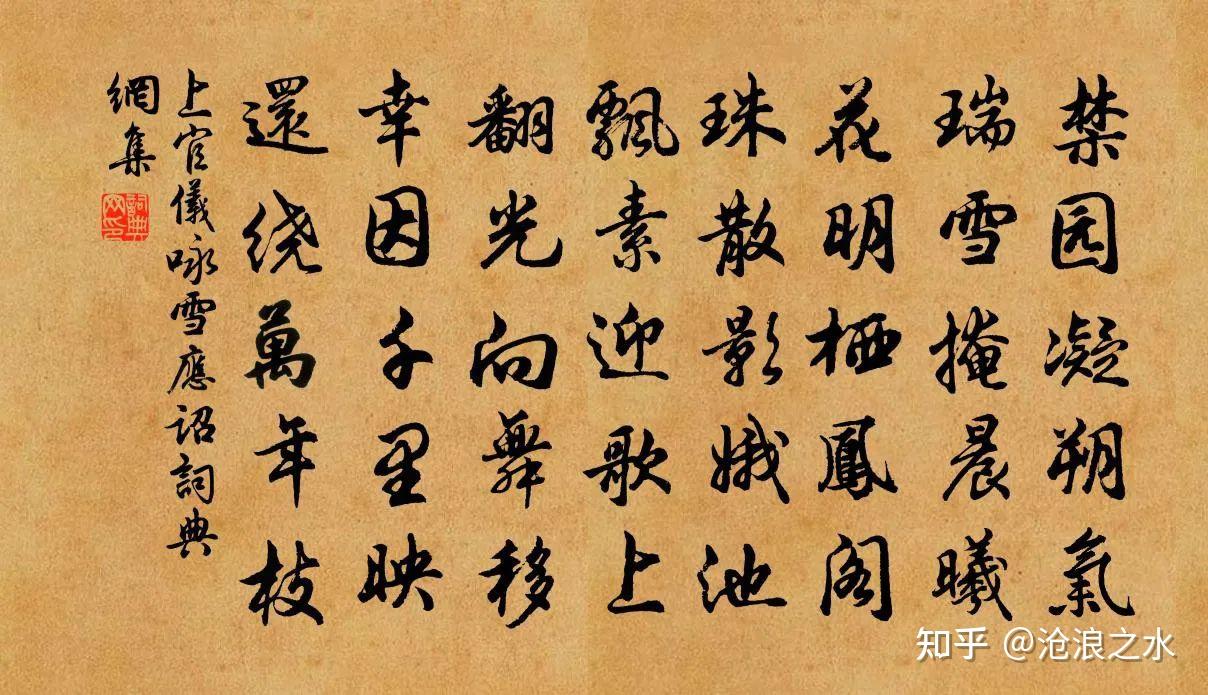 禁园凝朔氣
瑞雪掩晨曦
花明栖鳳阁
珠散影娥池
飄素迎歌上
翻光向舞移
幸因千里映
還绕萬年枝
上官儀咏雪應詔詞典
網集
詞典网印
知乎 @沧浪之水